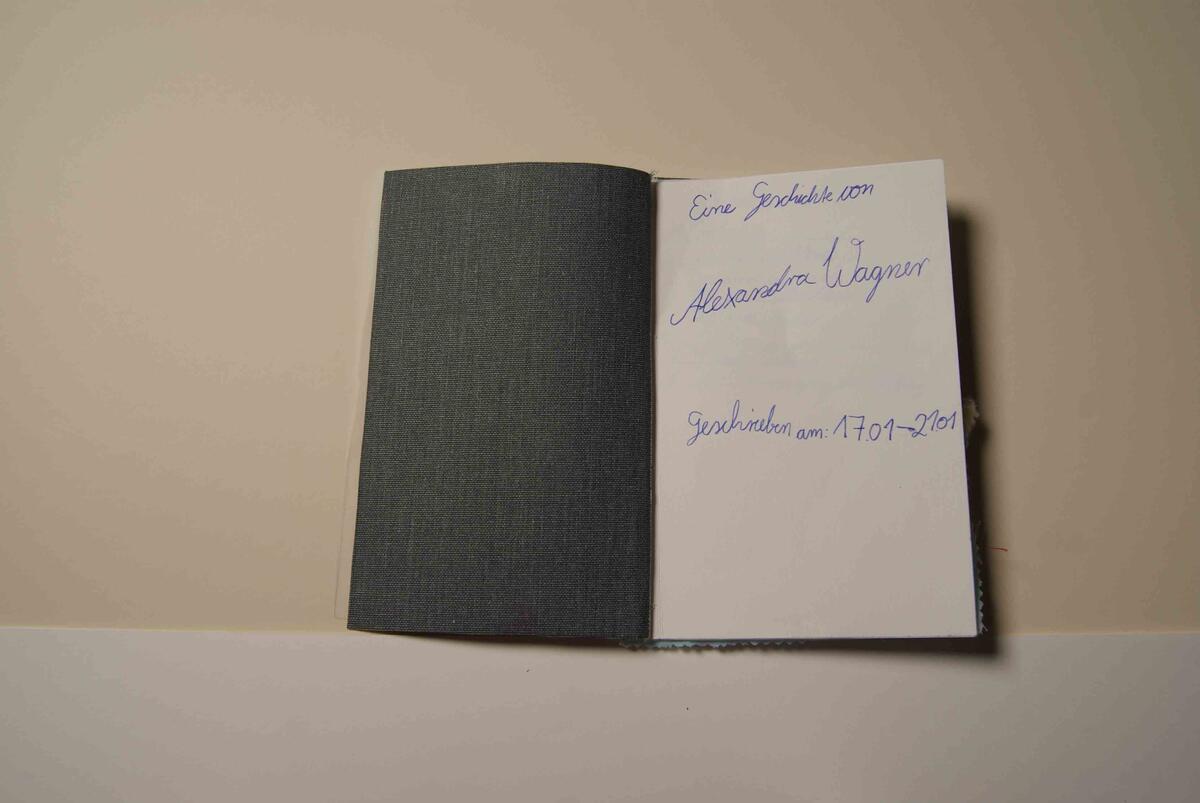 Eine Geschichte von
Alexandra Wagner
Geschrieben am: 17.01-21.01